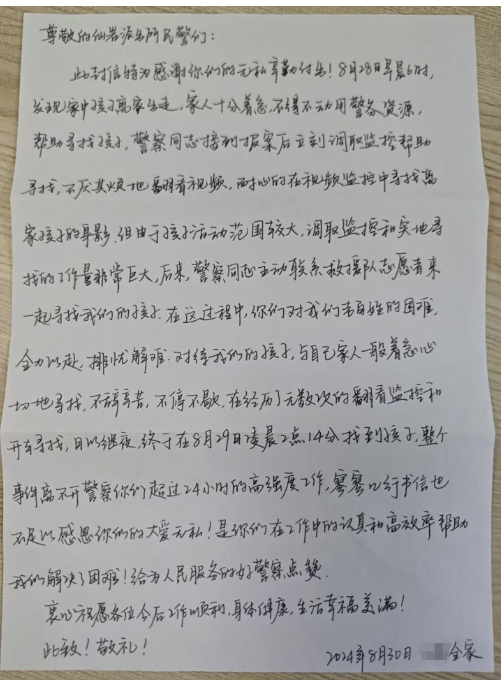 尊敬的仙岩派出所民警们：
此封信特为感谢你们的无私辛勤付出！8月28日早晨6时，
发现家中孩子离家出走，家人十分着急不得不动用警务资源，
帮助寻找孩子，警察同志接到报案后立刻调取监控帮助
寻找，不厌其烦地翻看视频，耐心的在视频监控中寻找离
家孩子的身影，但由于孩子活动范围较大，调取监控和实地寻
找的工作量非常巨大，后来，警察同志主动联系救援队志愿者来
一起寻找我们的孩子.在这过程中，你们对我们老百姓的困难，
全力以赴，排忧解难.对待我们的孩子，与自己家人一般着急心
切地寻找，不辞辛苦，不停不歇.在经历了无数次的翻看监控和
开车寻找，日以继夜，终于在8月29日凌晨2点14分找到孩子，整个
事件离不开警察你们超过24小时的高强度工作，寥寥几行书信也
不足以感恩你们的大爱无私！是你们在工作中的认真和高效率帮助
我们解决了困难！给为人民服务的好警察点赞.
衷心祝愿各位今后工作顺利，身体健康，生活幸福美满！
此致！敬礼！
2024年8月30日 全家